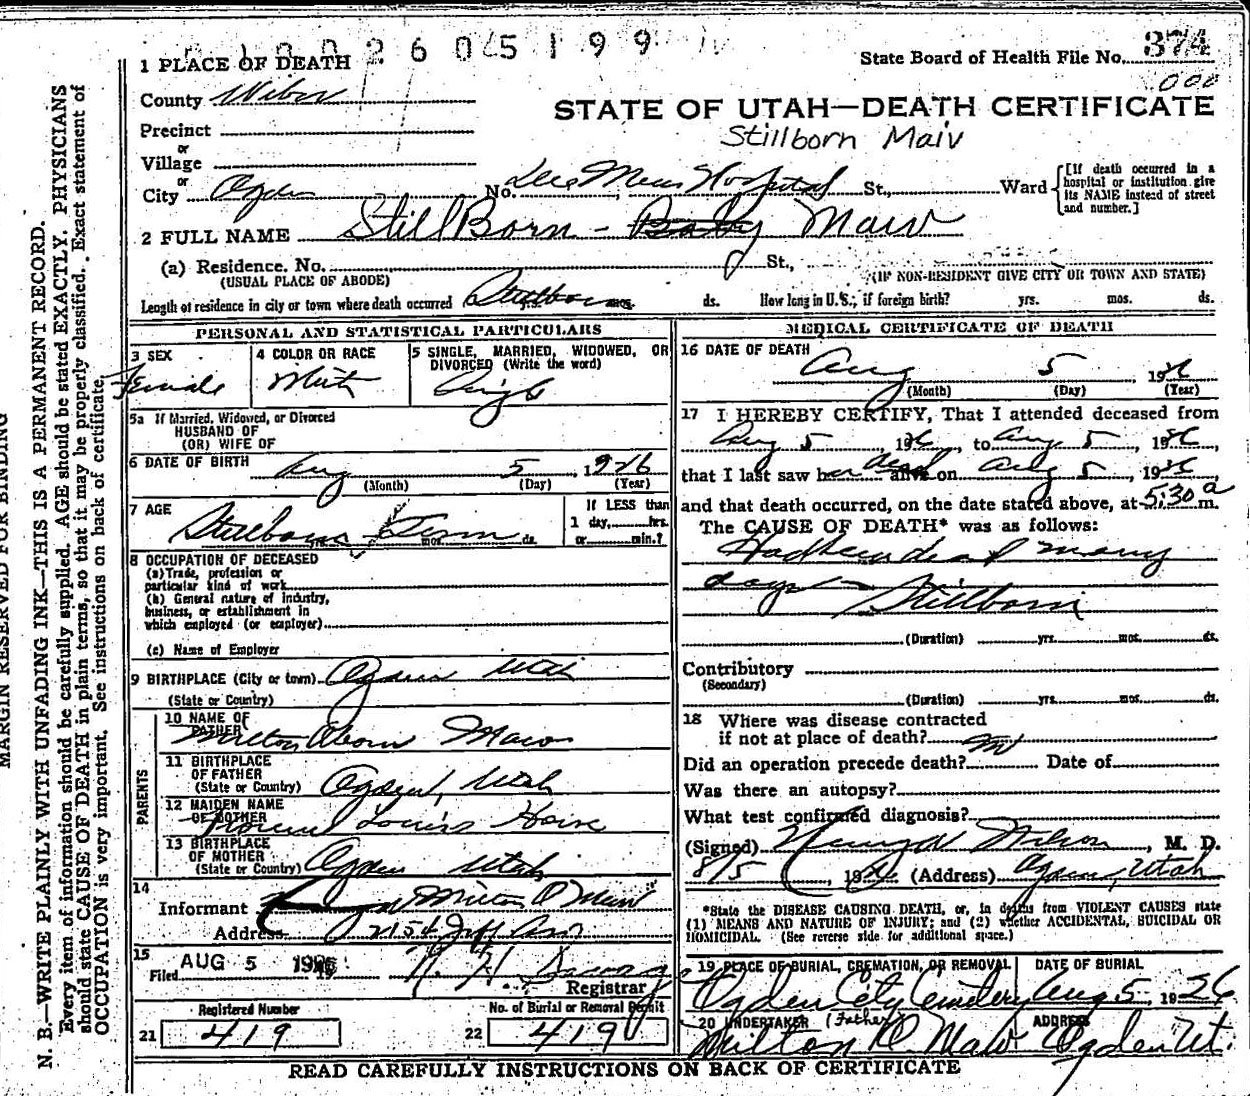 2 6 0 5 1 9 9
1 PLACE OF DEATH
State Board of Health File No. 374
000
County Weber
STATE OF UTAH—DEATH CERTIFICATE
Stillborn Maw
Precinct
or
Village
or
City Ogden No. Dee Mem Hospital St., Ward
[If death occurred in a hospital or institution give its NAME instead of street and number.]
2 FULL NAME StillBorn - Baby Maw
(a) Residence. No. St.,
(USUAL PLACE OF ABODE) (IF NON-RESIDENT GIVE CITY OR TOWN AND STATE)
Length of residence in city or town where death occurred Stillborn mos. ds. How long in U.S., if foreign birth? yrs. mos. ds.
PERSONAL AND STATISTICAL PARTICULARS
3 SEX Female
4 COLOR OR RACE White
5 SINGLE, MARRIED, WIDOWED, OR DIVORCED (Write the word) Single
5a If Married, Widowed, or Divorced
HUSBAND OF
(OR) WIFE OF
6 DATE OF BIRTH Aug 5, 1926
(Month) (Day) (Year)
7 AGE Stillborn Term mos. ds.
If LESS than
1 day, hrs.
or min.?
8 OCCUPATION OF DECEASED
(a) Trade, profession or
particular kind of work
(b) General nature of industry,
business, or establishment in
which employed (or employer)
(c) Name of Employer
9 BIRTHPLACE (City or town) Ogden Utah
(State or Country)
PARENTS
10 NAME OF FATHER Milton Maw
11 BIRTHPLACE
OF FATHER
(State or Country) Ogden, Utah
12 MAIDEN NAME
OF MOTHER Louise
13 BIRTHPLACE
OF MOTHER
(State or Country) Ogden Utah
14
Informant Milton O Maw
Address 2154 Jeff Ave
15
Filed AUG 5 1926 Registrar
Registered Number
21 419
No. of Burial or Removal Permit
22 419
MEDICAL CERTIFICATE OF DEATH
16 DATE OF DEATH
Aug 5, 1926
(Month) (Day) (Year)
17 I HEREBY CERTIFY, That I attended deceased from
Aug 5, 1926, to Aug 5, 1926,
that I last saw her dead alive on Aug 5, 1926
and that death occurred, on the date stated above, at 5:30 a m.
The CAUSE OF DEATH* was as follows:
Had been dead many
days - Stillborn
(Duration) yrs. mos. ds.
Contributory
(Secondary)
(Duration) yrs. mos. ds.
18 Where was disease contracted
if not at place of death?
Did an operation precede death? Date of
Was there an autopsy?
What test confirmed diagnosis?
(Signed) Wilson, M. D.
8/5, 1926 (Address) Ogden, Utah
*State the DISEASE CAUSING DEATH, or, in deaths from VIOLENT CAUSES state
(1) MEANS AND NATURE OF INJURY; and (2) whether ACCIDENTAL, SUICIDAL OR
HOMICIDAL. (See reverse side for additional space.)
19 PLACE OF BURIAL, CREMATION, OR REMOVAL DATE OF BURIAL
Ogden City Cemetery Aug 5, 1926
20 UNDERTAKER (Father) ADDRESS
Milton O Maw Ogden Ut.
READ CAREFULLY INSTRUCTIONS ON BACK OF CERTIFICATE
MARGIN RESERVED FOR BINDING
N. B.—WRITE PLAINLY WITH UNFADING INK—THIS IS A PERMANENT RECORD.
Every item of information should be carefully supplied. AGE should be stated EXACTLY. PHYSICIANS
should state CAUSE OF DEATH in plain terms, so that it may be properly classified. Exact statement of
OCCUPATION is very important. See instructions on back of certificate.